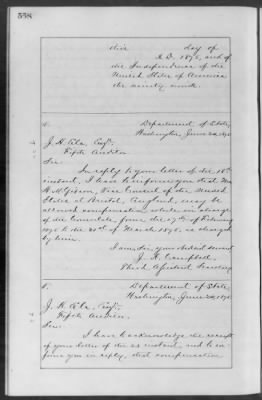 558
this day of
A.D. 1875, and of
the Independence of the
United States of America
the ninety ninth.
Department of State,
Washington, June
J. H. Ela, Esqr.
Fifth Auditor
Sir:
In reply to your letter of the 18th
instant, I have to inform you that Mr.
H. M. Vice Consul of the United
States at Bristol, England, may be
allowed compensation while in charge
of the Consulate, from the 17th of February
1875 to the 31st of March 1875, as charged
by him.
I am, Sir, your obedient servant
J. A. Campbell
Third Assistant Secretary
Department of State,
Washington, June
J. H. Ela, Esqr.
Fifth Auditor.
Sir:
I have to acknowledge the receipt
of your letter of the instant and to in-
form you in reply, that compensation